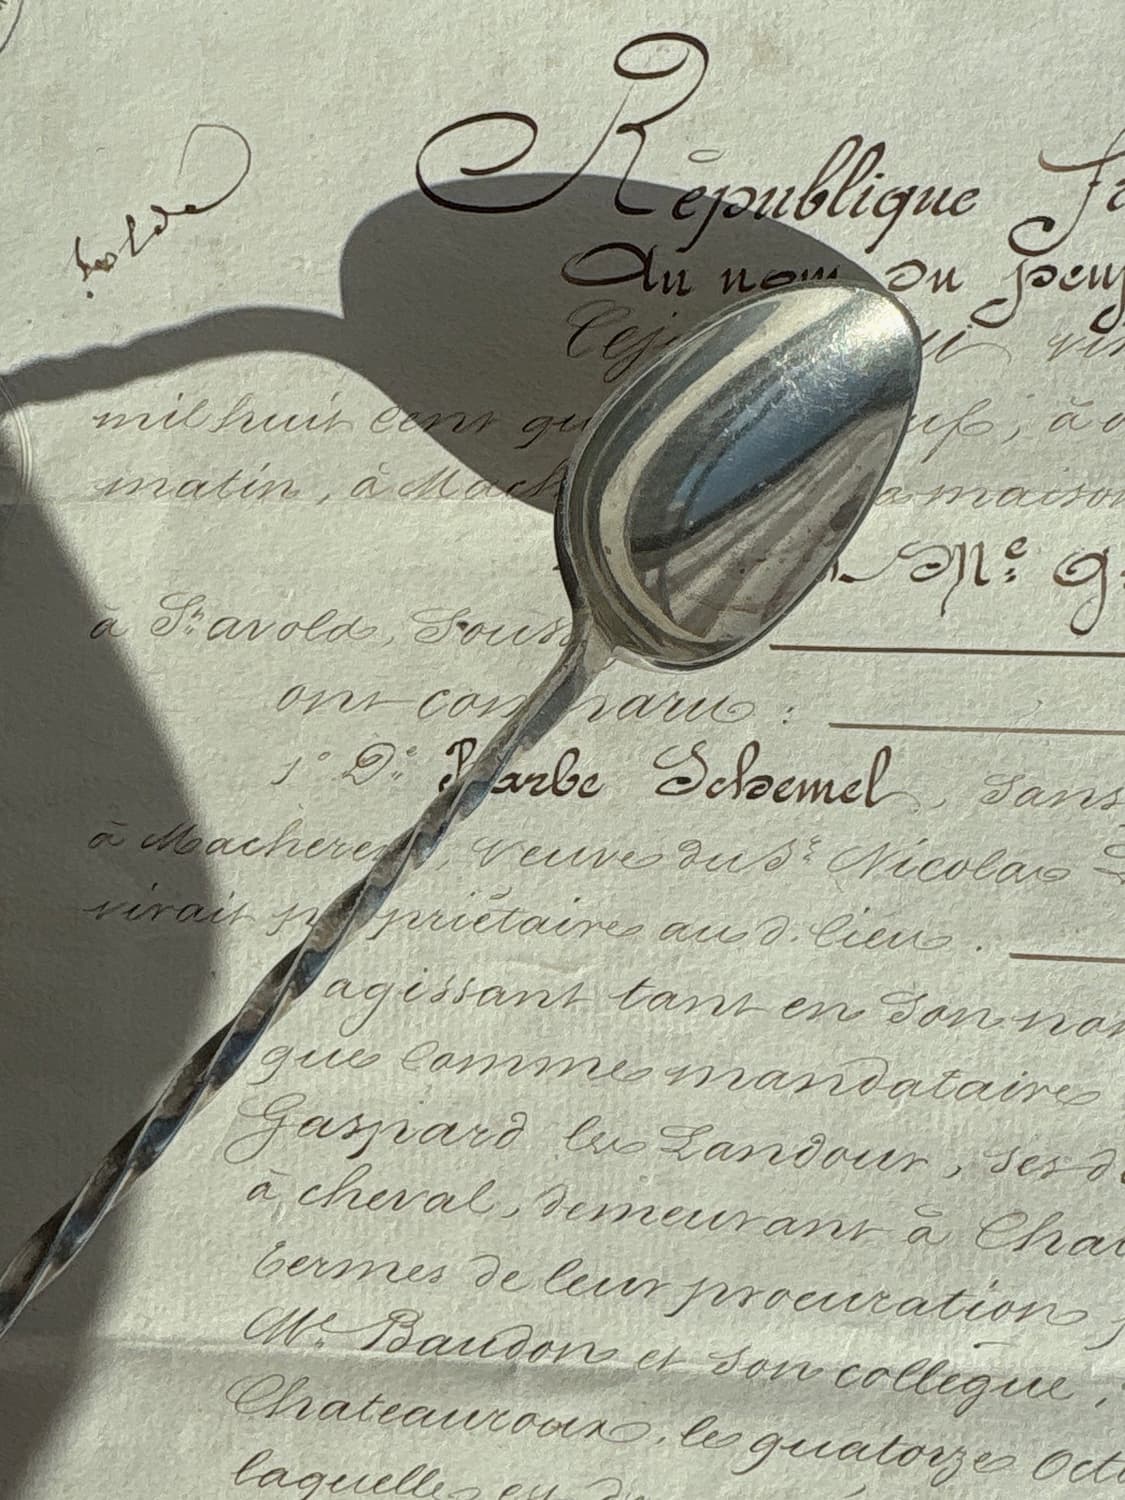 République
Au nom du peup
Cej
mil huit cent qu
matin, à Mach maison
Me G
à St. avold, Sous
ont comparu :
1° De. Barbe Schemel, sans
à Macheren, veuve du Sr. Nicolas
vivait propriétaire au d. lieu.
agissant tant en son nom
que comme mandataire
Gaspard les Landour, ses d
à cheval, demeurant à Cha
termes de leur procuration
Me. Baudon et son collègue,
Chateauroux, le quatorze Oct
laquelle